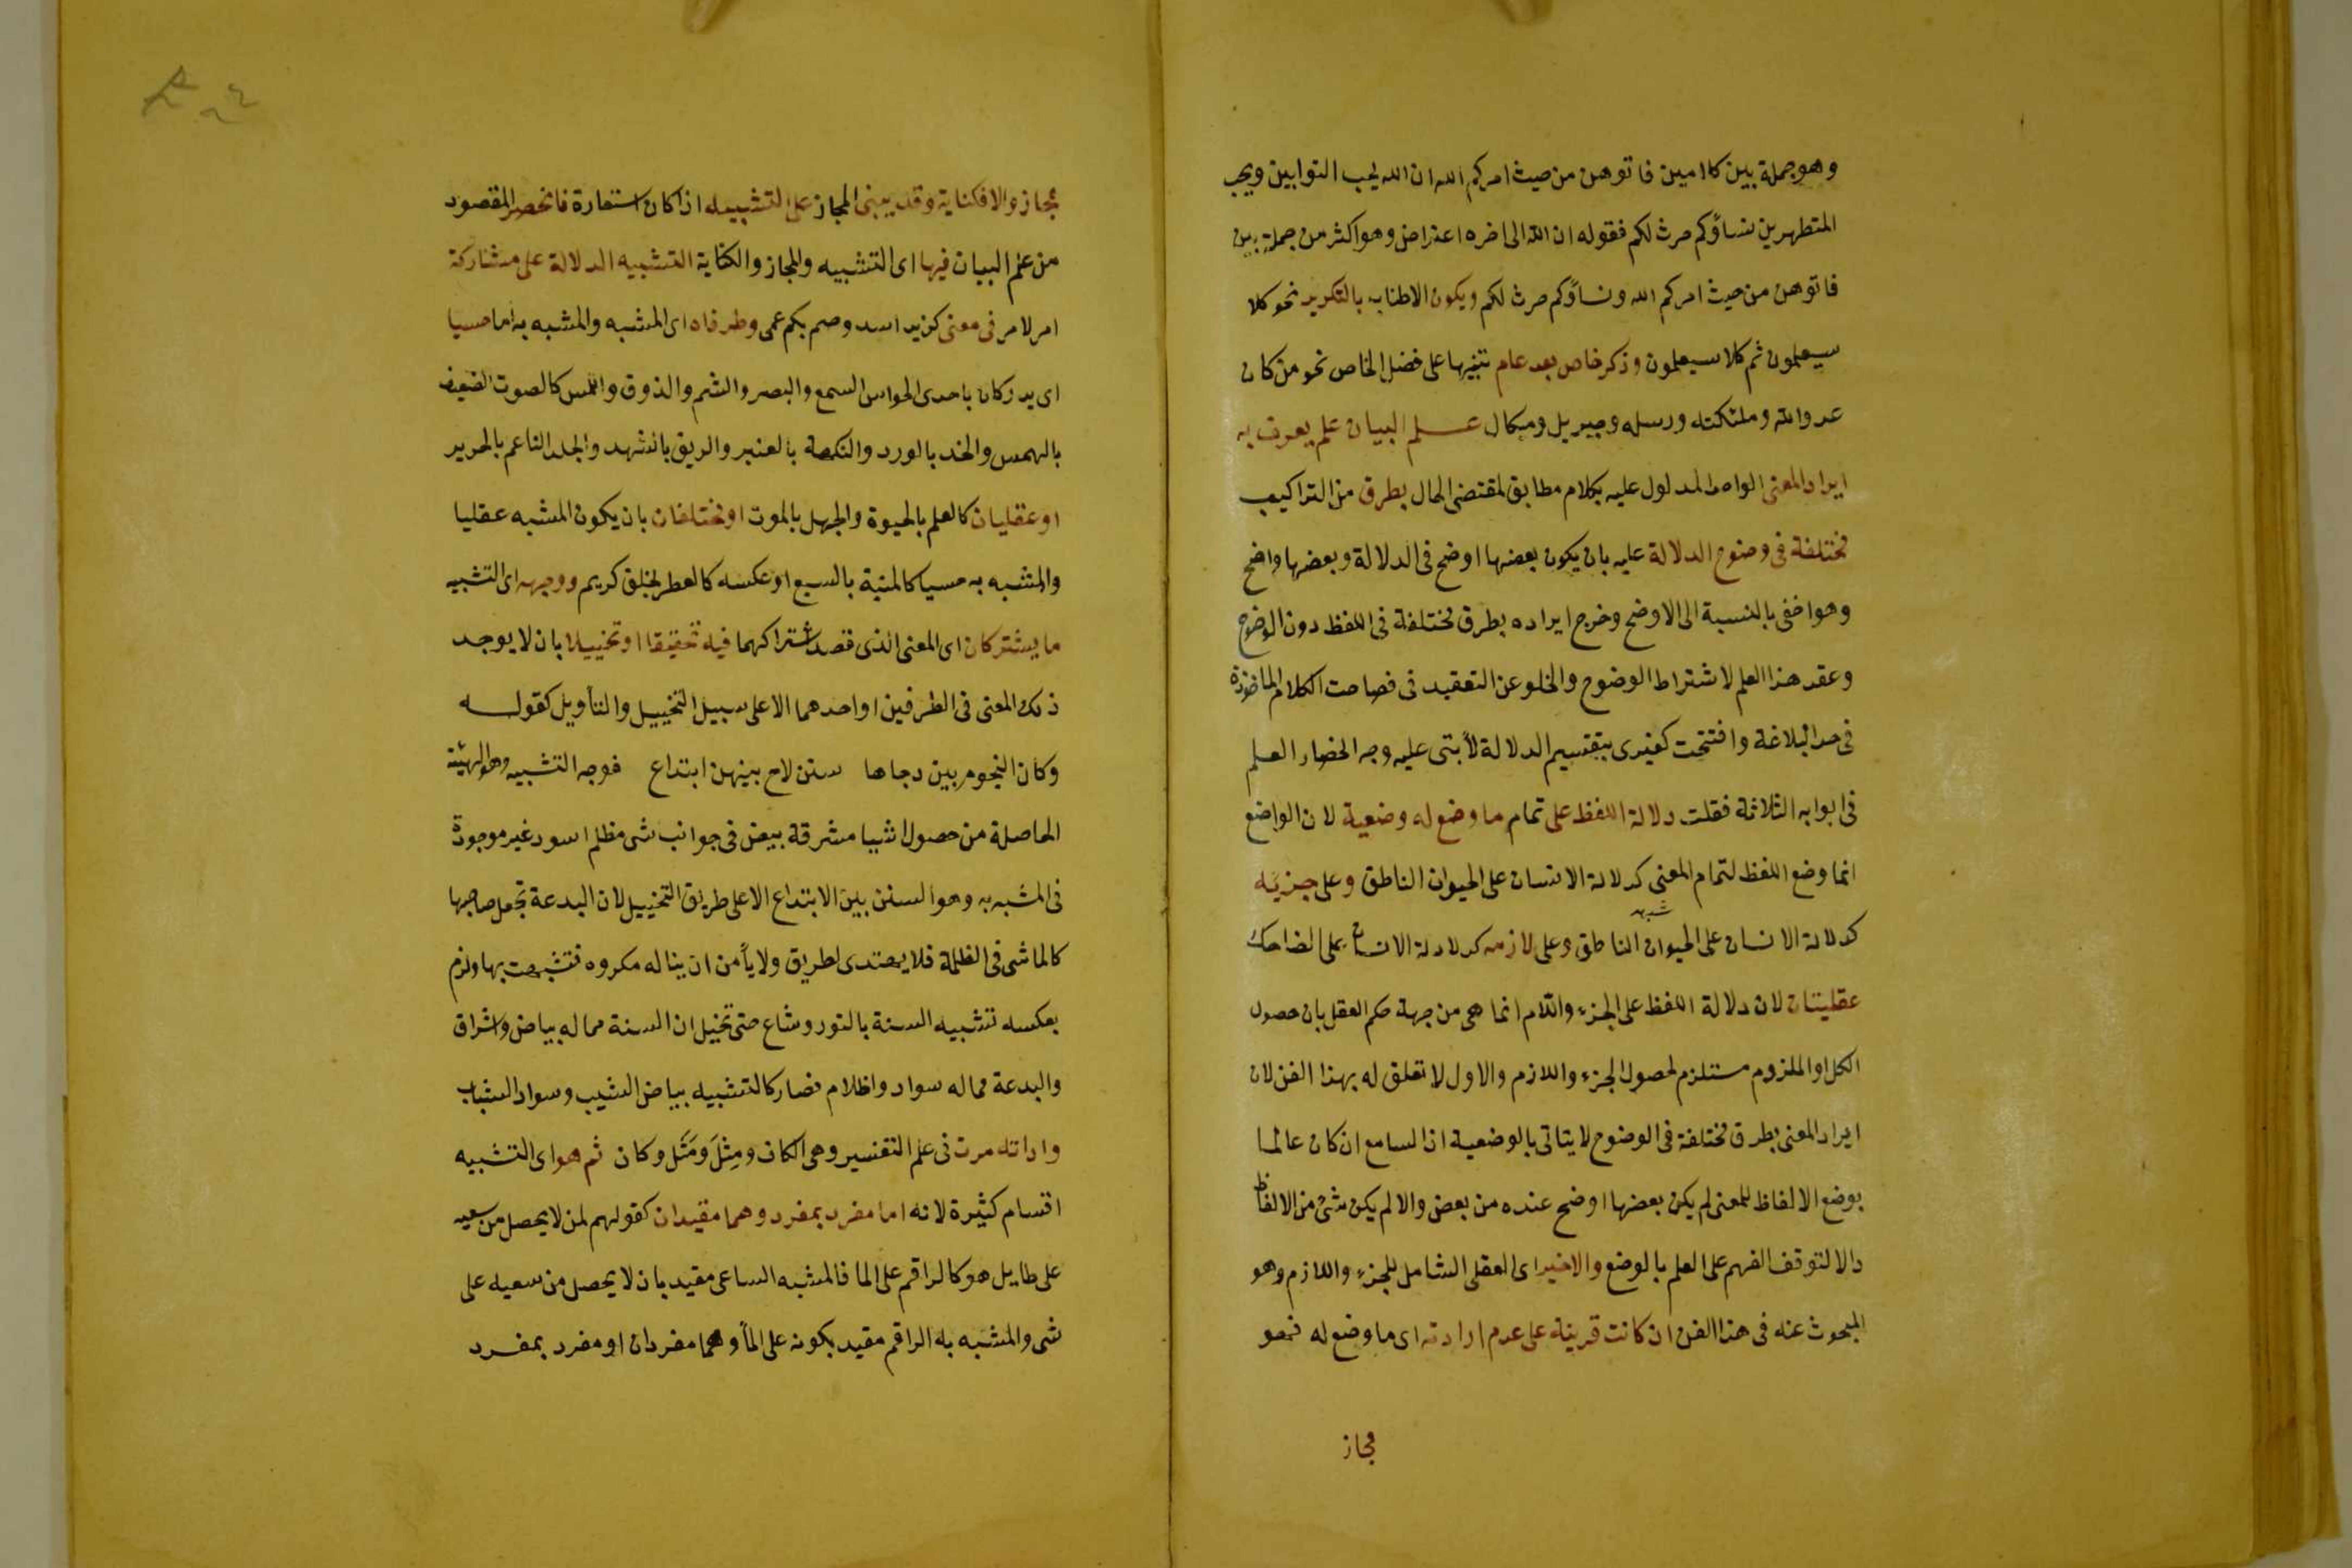 وهو جملة بين كلامين فاتوهن من حيث امركم الله ان الله يحب التوابين ويحب
المتطهرين نساؤكم حرث لكم فقوله ان الله الى اخره اعتراض وهو اكثر من جملة بين
فاتوهن من حيث امركم الله ونساؤكم حرث لكم ويكون الاطناب بالتكرير نحو كلا
سيعلمون ثم كلا سيعلمون وذكر خاص بعد عام تنبيها على فضل الخاص نحو من كان
عدوا لله وملئكته ورسله وجبريل وميكال علم البيان علم يعرف به
ايراد المعنى الواحد المدلول عليه بكلام مطابق لمقتضى الحال بطرق من التراكيب
مختلفة فى وضوح الدلالة عليه بان يكون بعضها اوضح فى الدلالة وبعضها واضح
وهو اخفى بالنسبة الى الاوضح وخرج ايراده بطرق مختلفة فى اللفظ دون الوضوح
وعقد هذا العلم لاشتراط الوضوح والخلو عن التعقيد فى فصاحت الكلام الماخوذة
فى حد البلاغة وافتتحت كغيرى بتقسيم الدلالة لأبتى عليه وجه الحضار العلم
فى ابوابه الثلاثة فقلت دلالة اللفظ على تمام ما وضع له وضعية لان الواضع
انما وضع اللفظ لتمام المعنى كدلالة الانسان على الحيوان الناطق وعلى جزئه
شبهه
كدلالة الانسان على الحيوان الناطق وعلى لازمه كدلادلة الانسان على الضاحك
عقليتان لان دلالة اللفظ على الجزء واللام انما هى من جهة حكم العقل بان حصول
الكل او الملزوم مستلزم لحصول الجزء واللازم والاول لا تعلق له بهذا الفن لان
ايراد المعنى بطرق مختلفة فى الوضوح لا يتاتى بالوضعية اذ السامع ان كان عالما
بوضع الالفاظ للمعنى لم يكن بعضها اوضح عنده من بعض والا لم يكن شئ من الالفاظ
دالا لتوقف الفهم على العلم بالوضع والاخير اى العقلى الشامل للجزء واللازم وهو
المبحوث عنه فى هذا الفن ان كانت قرينة على عدم ارادته اى ما وضع له فهو
مجاز
مجاز والا فكناية وقد يبنى المجاز على التشبيه اذا كان استعارة فانحصر المقصود
من علم البيان فيها اى التشبيه والمجاز والكناية التشبيه الدلالة على مشاركة
امر لامر فى معنى كزيد اسد وصم بكم عمى وطرفاه اى المشبه والمشبه به اما حسيا
اى يدركان باحدى الحواس السمع والبصر والشم والذوق واللمس كالصوت الضعيف
بالهمس والخد بالورد والنكهة بالعنبر والريق بالشهد والجلد الناعم بالحرير
او عقليان كالعلم بالحيوة والجهل بالموت او مختلفان بان يكون المشبه عقليا
والمشبه به حسيا كالمنية بالسبع او عكسه كالعطر بخلق كريم ووجهه اى التشبيه
ما يشتركان اى المعنى الذى قصد اشتراكهما فيه تحقيقا او تخييلا بان لا يوجد
ذلك المعنى فى الطرفين او احدهما الا على سبيل التخييل والتأويل كقوله
وكان النجوم بين دجاها سنن لاح بينهن ابتداع فوجه التشبيه وهو الهيئة
الحاصلة من حصول اشيا مشرقة بيض فى جوانب شى مظلم اسود غير موجودة
فى المشبه به وهو السنن بين الابتداع الا على طريق التخييل لان البدعة تجعل صاحبها
كالماشى فى الظلمة فلا يهتدى لطريق ولا يأمن ان يناله مكروه فتشبهت بها ولزم
بعكسه تشبيه السنة بالنور وشاع حتى تخيل ان السنة مما له بياض واشراق
والبدعة مما له سواد واظلام فصار كالتشبيه ببياض الشيب وسواد الشباب
واداته مرت فى علم التفسير وهى الكاف ومِثل ومَثَل وكان ثم هو اى التشبيه
اقسام كثيرة لانه اما مفرد بمفرد وهما مقيدان كقولهم لمن لا يحصل من سعيه
على طايل هو كالراقم على الما فالمشبه الساعى مقيد بان لا يحصل من سعيه على
شى والمشبه به الراقم مقيد بكونه على المأ وهما مفردان او مفرد بمفرد